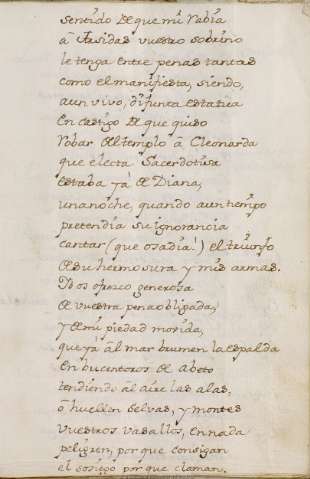 sentido de que mi rabia
â Jasidas vuestro sobrino
le tenga entre penas tantas
como el manifiesta, siendo,
aun vivo, difunta estatua
en castigo de que quiso
robar del templo â Cleonarda
que electa Sacerdotisa
estaba yâ de Diana,
una noche, quando aun tiempo
pretendia su ignorancia
cantar (que osadia!) el triunfo
de su hermosura y mis armas.
Yo os ofrezco generosa
de vuestra pena obligada,
y de mi piedad movida,
que yâ âl mar brumen la espalda
en bucentoros de Abeto
tendiendo âl aire las alas,
ô huellen selvas, y montes
vuestros vasallos, en nada
peligren, por que consigan
el sosiego por que claman.